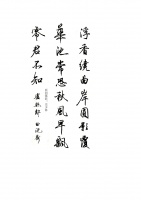 浮香繞曲岸圓影覆
華池常恐秋風早飄
零君不知 盧照鄰 曲池荷